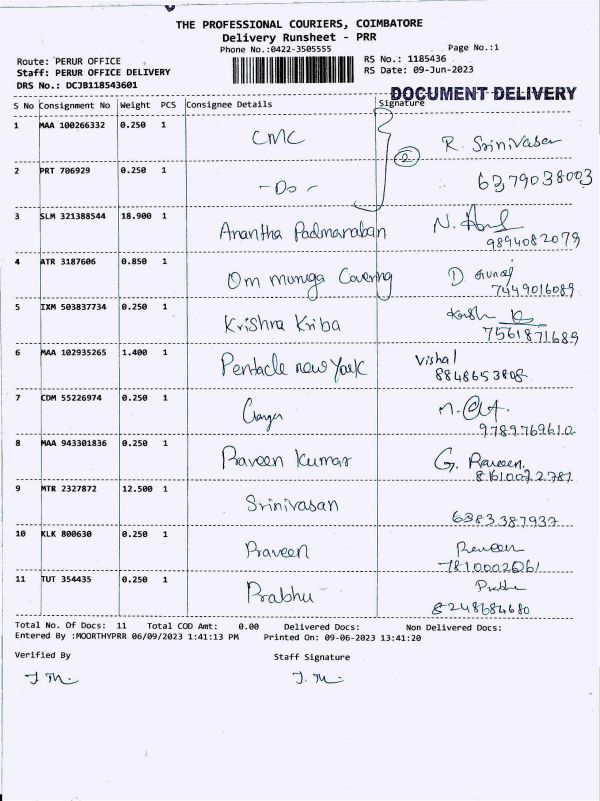 THE PROFESSIONAL COURIERS, COIMBATORE
Delivery Runsheet - PRR
Phone No.:0422-3505555 Page No.:1
Route: PERUR OFFICE RS No.: 1185436
Staff: PERUR OFFICE DELIVERY RS Date: 09-Jun-2023
DRS No.: DCJB118543601
DOCUMENT DELIVERY
S No Consignment No Weight PCS Consignee Details Signature
1 MAA 100266332 0.250 1 CMC R. Srinivasan
2 PRT 706929 0.250 1 -Do- 2 6379038003
3 SLM 321388544 18.900 1 Anantha Padmanaban N.
9894082079
4 ATR 3187606 0.850 1 Om muruga Covering D.
7449016089
5 IXM 503837734 0.250 1 Krishna Kriba
7561871689
6 MAA 102935265 1.400 1 Pentacle new York Vishal
8848653808
7 CDM 55226974 0.250 1
9789769610
8 MAA 943301836 0.250 1 Praveen Kumar G. Praveen.
8610072781
9 MTR 2327872 12.500 1 Srinivasan
6383387937
10 KLK 800630 0.250 1 Praveen Praveen
7810002061
11 TUT 354435 0.250 1 Prabhu
8248684680
Total No. Of Docs: 11 Total COD Amt: 0.00 Delivered Docs: Non Delivered Docs:
Entered By :MOORTHYPRR 06/09/2023 1:41:13 PM Printed On: 09-06-2023 13:41:20
Verified By Staff Signature